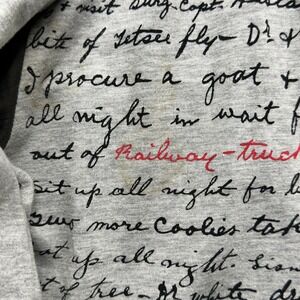 & visit Surg. Capt.
bite of Tetsee fly - Dr &
I procure a goat &
all night in wait f
out of Railway - truck
sit up all night for l
more Coolies tak
up all night.
of tree - white